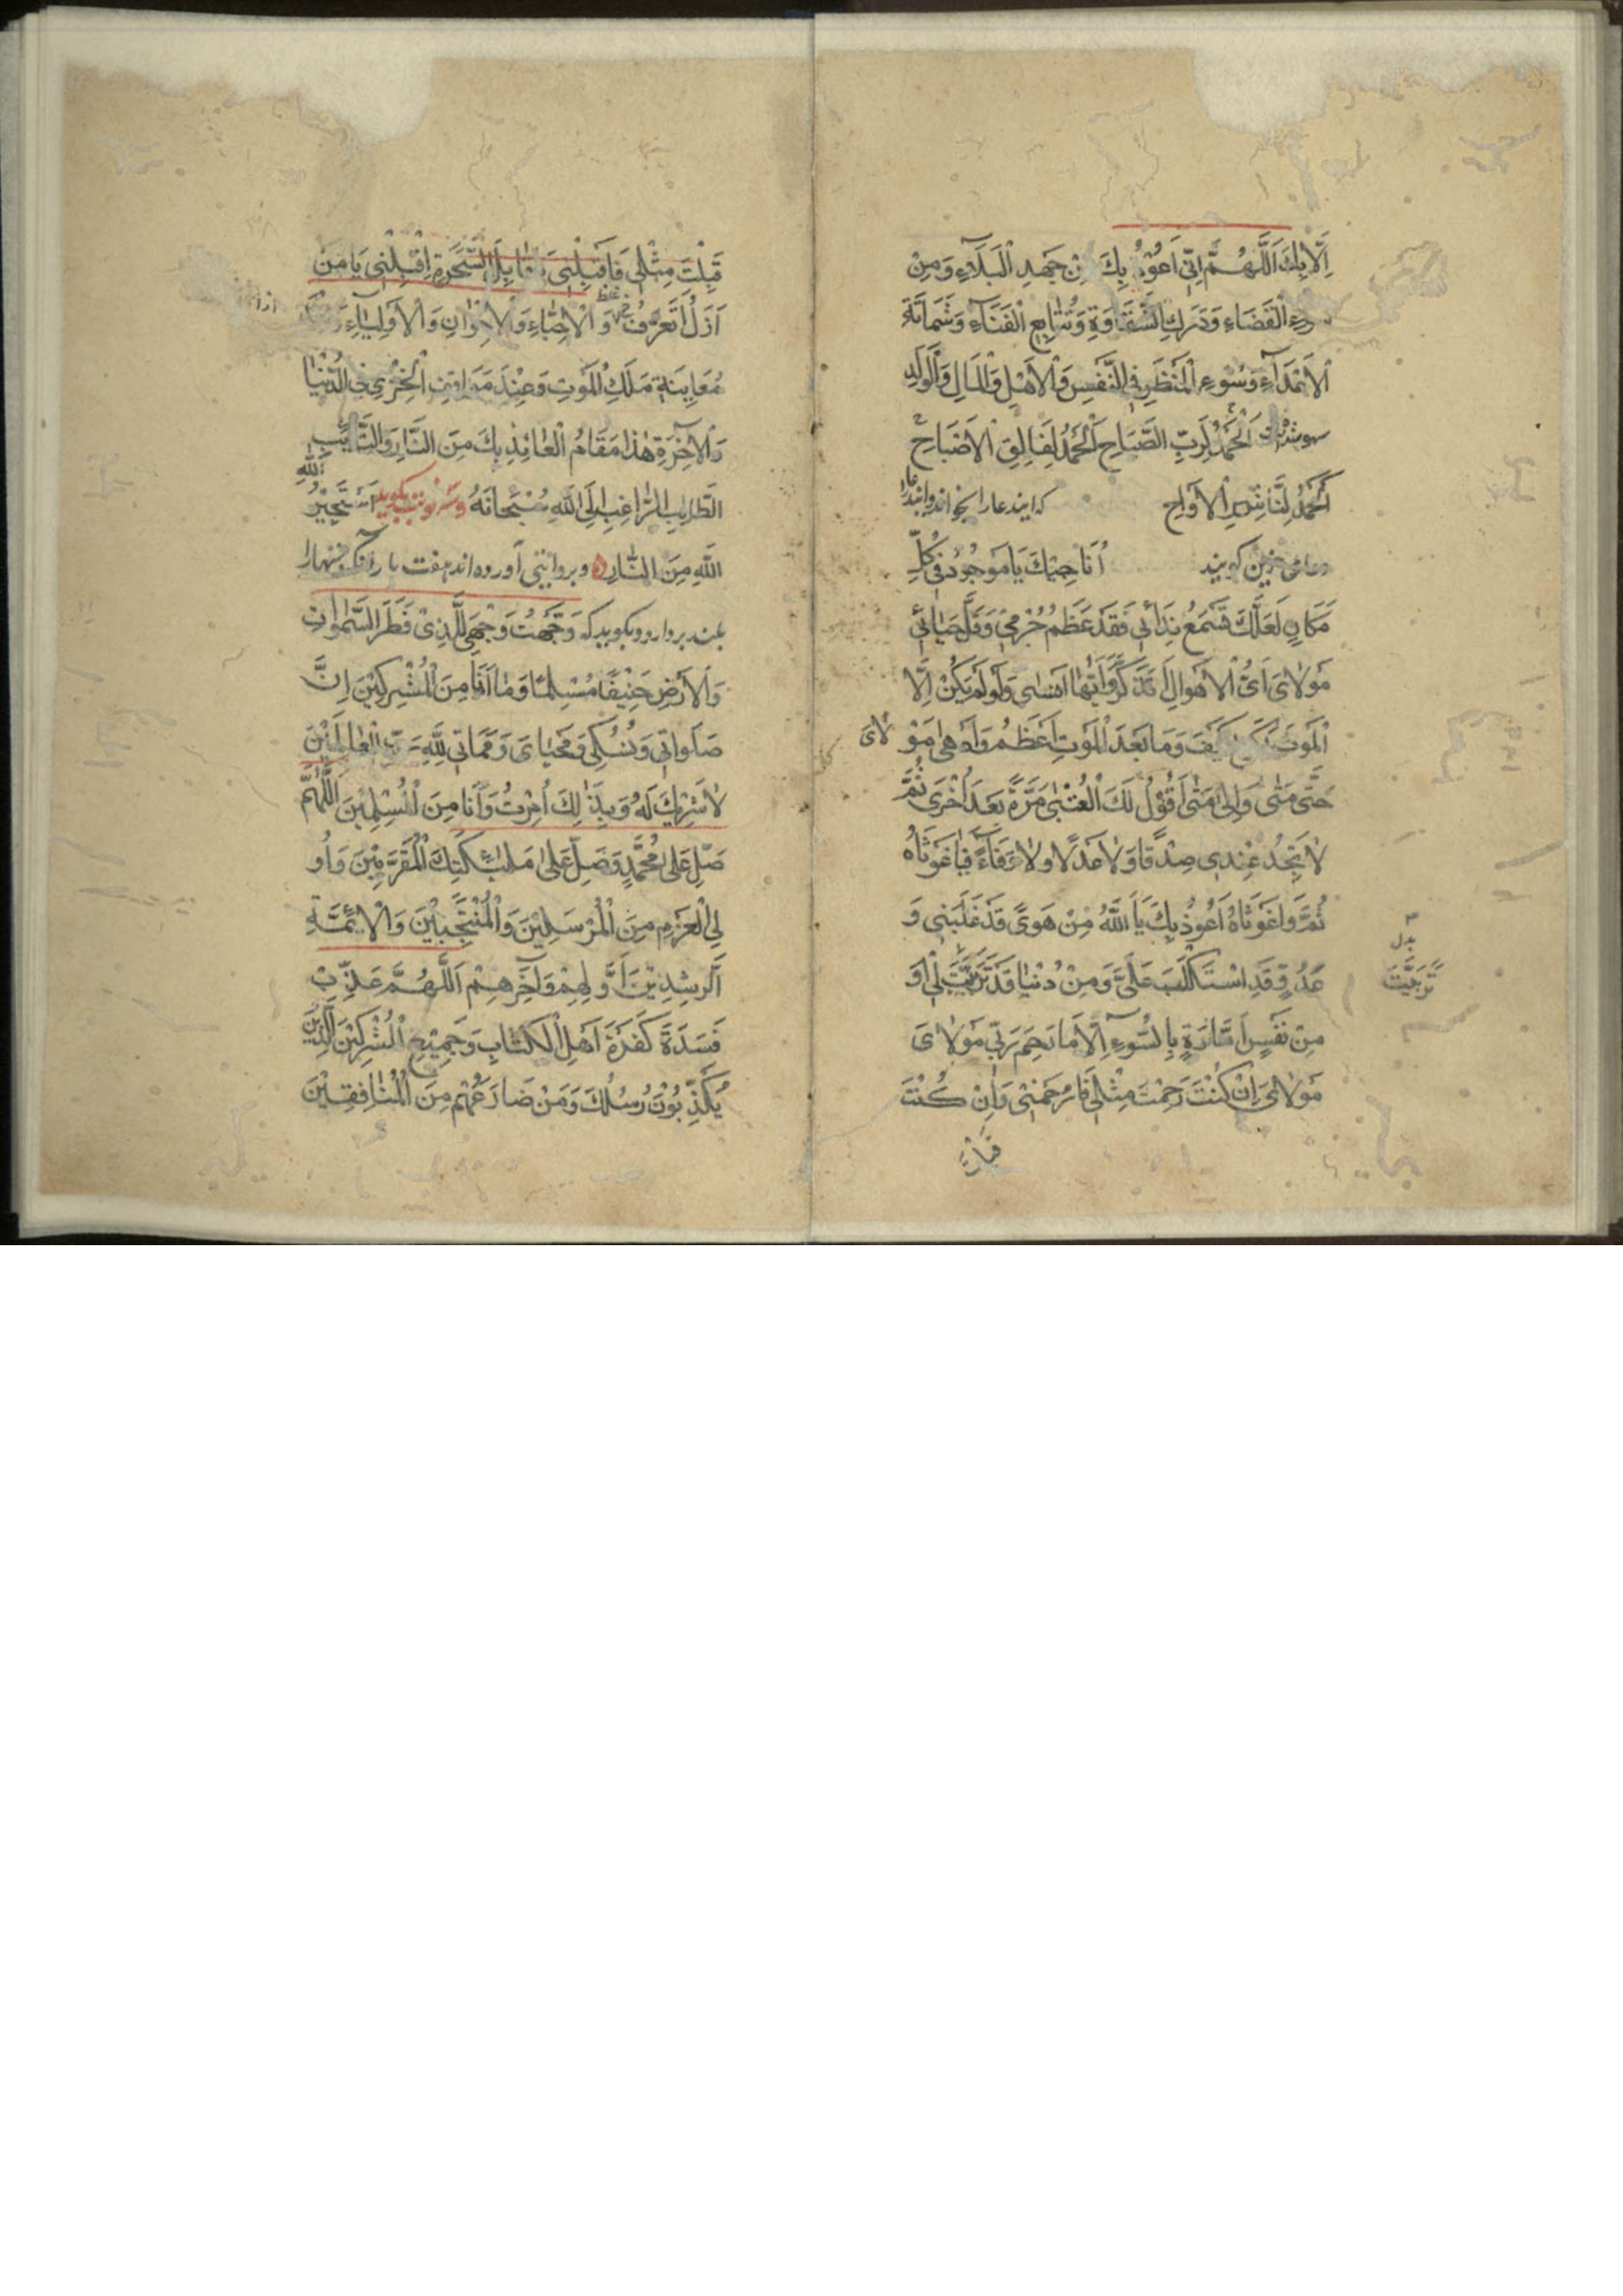 اِلَّا بِكَ اَللّٰهُمَّ اِنّي اَعُوْذُ بِكَ مِنْ جَهْدِ الْبَلَاءِ وَمِنْ
سوءِ الْقَضَاءِ وَدَرَكِ الشَّقَاوَةِ وَتَتَابِعِ الْفَنَاءِ وَشَمَاتَةِ
الْاَعْدَآءِ وَسُوءِ الْمَنْظَرِ فِي النَّفْسِ وَالْاَهْلِ وَالْمَالِ وَالْوَلَدِ
اَلْحَمْدُ لِرَبِّ الصَّبَاحِ اَلْحَمْدُ لِفَالِقِ الْاَصْبَاحِ
اَلْحَمْدُ لِنَاشِرِ الْاَرْوَاحِ
دعای حزین گویند اُنَاجِيْكَ يَا مَوْجُودُ فِي كُلِّ
مَكَانٍ لَعَلَّكَ تَسْمَعُ نِدَائي فَقَدْ عَظُمَ جُرْمِي وَقَلَّ حَيَائي
مَوْلَايَ اَيَّ الْاَهْوَالِ اَتَذَكَّرُ وَاَيَّهَا اَنْسٰى وَلَوْ لَمْ يَكُنْ اِلَّا
الْمَوْتَ لَكَفٰى كَيْفَ وَمَا بَعْدَ الْمَوْتِ اَعْظَمُ وَاَدْهٰى مَوْلَايَ
حَتّٰى مَتٰى وَاِلىٰ مَتٰى اَقُوْلُ لَكَ الْعُتْبٰى مَرَّةً بَعْدَ اُخْرٰى ثُمَّ
لَا تَجِدُ عِنْدِي صِدْقًا وَلَا عَدْلًا وَلَا وَفَاءً فَيَا غَوْثَاهُ
ثُمَّ وَاغَوْثَاهُ اَعُوْذُ بِكَ يَا اَللّٰهُ مِنْ هَوىً قَدْ غَلَبَنِي وَ
عَدُوٍّ قَدِ اسْتَكْلَبَ عَلَيَّ وَمِنْ دُنْيَا قَدْ تَزَيَّنَتْ لِي وَ
بدل
مِنْ نَفْسٍ اَمَّارَةٍ بِالسُّوءِ اِلَّا مَا رَحِمَ رَبّي مَوْلَايَ
مَوْلَايَ اِنْ كُنْتَ رَحِمْتَ مِثْلِي فَارْحَمْنِي وَاِنْ كُنْتَ
قَبِلْتَ مِثْلِي فَاقْبَلْنِي يَا قَابِلَ السَّحَرَةِ اِقْبَلْنِي يَا مَنْ
وَ الْاَحِبَّاءِ وَالْاِخْوَانِ وَالْاَوْلِيَاءِ
مُعَايِنَةِ مَلَكِ الْمَوْتِ وَعِنْدَ مَوَاقِفِ الْخِزْيِ فِي الدُّنْيَا
وَالْآخِرَةِ هٰذَا مَقَامُ الْعَائِذِ بِكَ مِنَ النَّارِ وَالتَّائِبِ
الطَّالِبِ الرَّاغِبِ اِلَى اللّٰهِ سُبْحَانَهُ وسه نوبت بگوید اَسْتَجِيْرُ
اللّٰهِ مِنَ النَّارِ و بروایتی آورده اند هفت بار آنگه دستها را
بلند بردارد و بگوید که وَجَّهْتُ وَجْهِيَ لِلَّذِيْ فَطَرَ السَّمٰوَاتِ
وَالْاَرْضَ حَنِيْفًا مُسْلِمًا وَمَا اَنَا مِنَ الْمُشْرِكِيْنَ اِنَّ
صَلَوَاتي وَنُسُكِي وَمَحْيَايَ وَمَمَاتي لِلّٰهِ رَبِّ الْعَالَمِيْنَ
لَا شَرِيْكَ لَهُ وَبِذٰلِكَ اُمِرْتُ وَاَنَا مِنَ الْمُسْلِمِيْنَ اَللّٰهُمَّ
صَلِّ عَلىٰ مُحَمَّدٍ وَصَلِّ عَلىٰ مَلٰئِكَتِكَ الْمُقَرَّبِيْنَ وَاُو
لِي الْعَزْمِ مِنَ الْمُرْسَلِيْنَ وَالْمُنْتَجَبِيْنَ وَالْاَئِمَّةِ
الرَّشِدِيْنَ اَوَّلِهِمْ وَآخِرِهِمْ اَللّٰهُمَّ عَذِّبْ
فَسَدَةَ كَفَرَةَ اَهْلِ الْكِتَابِ وَجَمِيْعِ الْمُشْرِكِيْنَ الَّذِيْنَ
يُكَذِّبُوْنَ رُسُلَكَ وَمَنْ ضَارَعَهُمْ مِنَ الْمُنَافِقِيْنَ